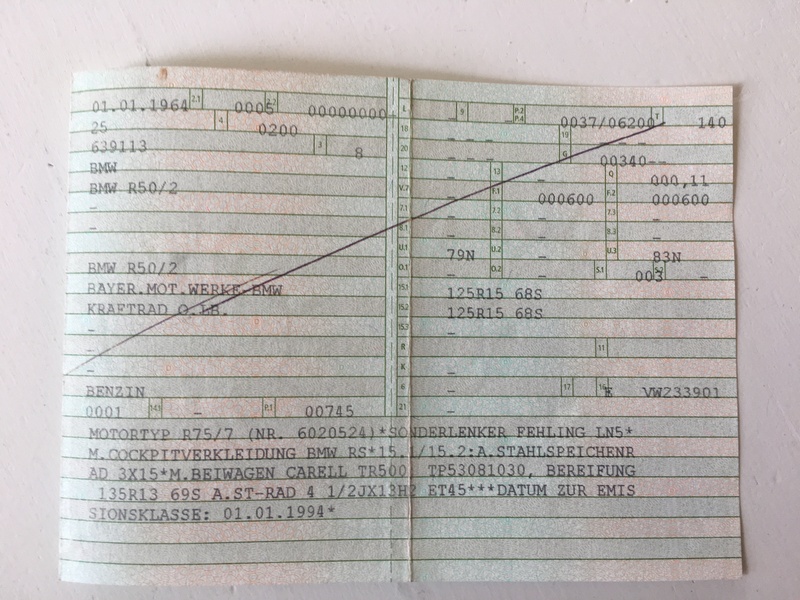 01.01.1964 2.1 0005 2.2 00000000 L - 9 - P.2 P.4 0037/06200 T 140
25 4 0200 18 - - - 19 - - -
639113 J 8 20 - - - G 00340--
BMW 12 - 13 - Q 000,11
BMW R50/2 V.7 - F.1 000600 F.2 000600
- 7.1 - 7.2 - 7.3 -
- 8.1 - 8.2 - 8.3 -
U.1 79N U.2 - U.3 83N
BMW R50/2 O.1 - O.2 - S.1 003 S.2 -
BAYER.MOT.WERKE-BMW 15.1 125R15 68S
KRAFTRAD O.LB. 15.2 125R15 68S
- 15.3 -
- R - 11
- K -
BENZIN 6 - 17 16 E VW233901
0001 14.1 - P.1 00745 21 -
MOTORTYP R75/7 (NR. 6020524)*SONDERLENKER FEHLING LN5*
M.COCKPITVERKLEIDUNG BMW RS*15.1/15.2:A.STAHLSPEICHENR
AD 3X15*M.BEIWAGEN CARELL TR500, TP53081030, BEREIFUNG
135R13 69S A.ST-RAD 4 1/2JX13H2 ET45***DATUM ZUR EMIS
SIONSKLASSE: 01.01.1994*